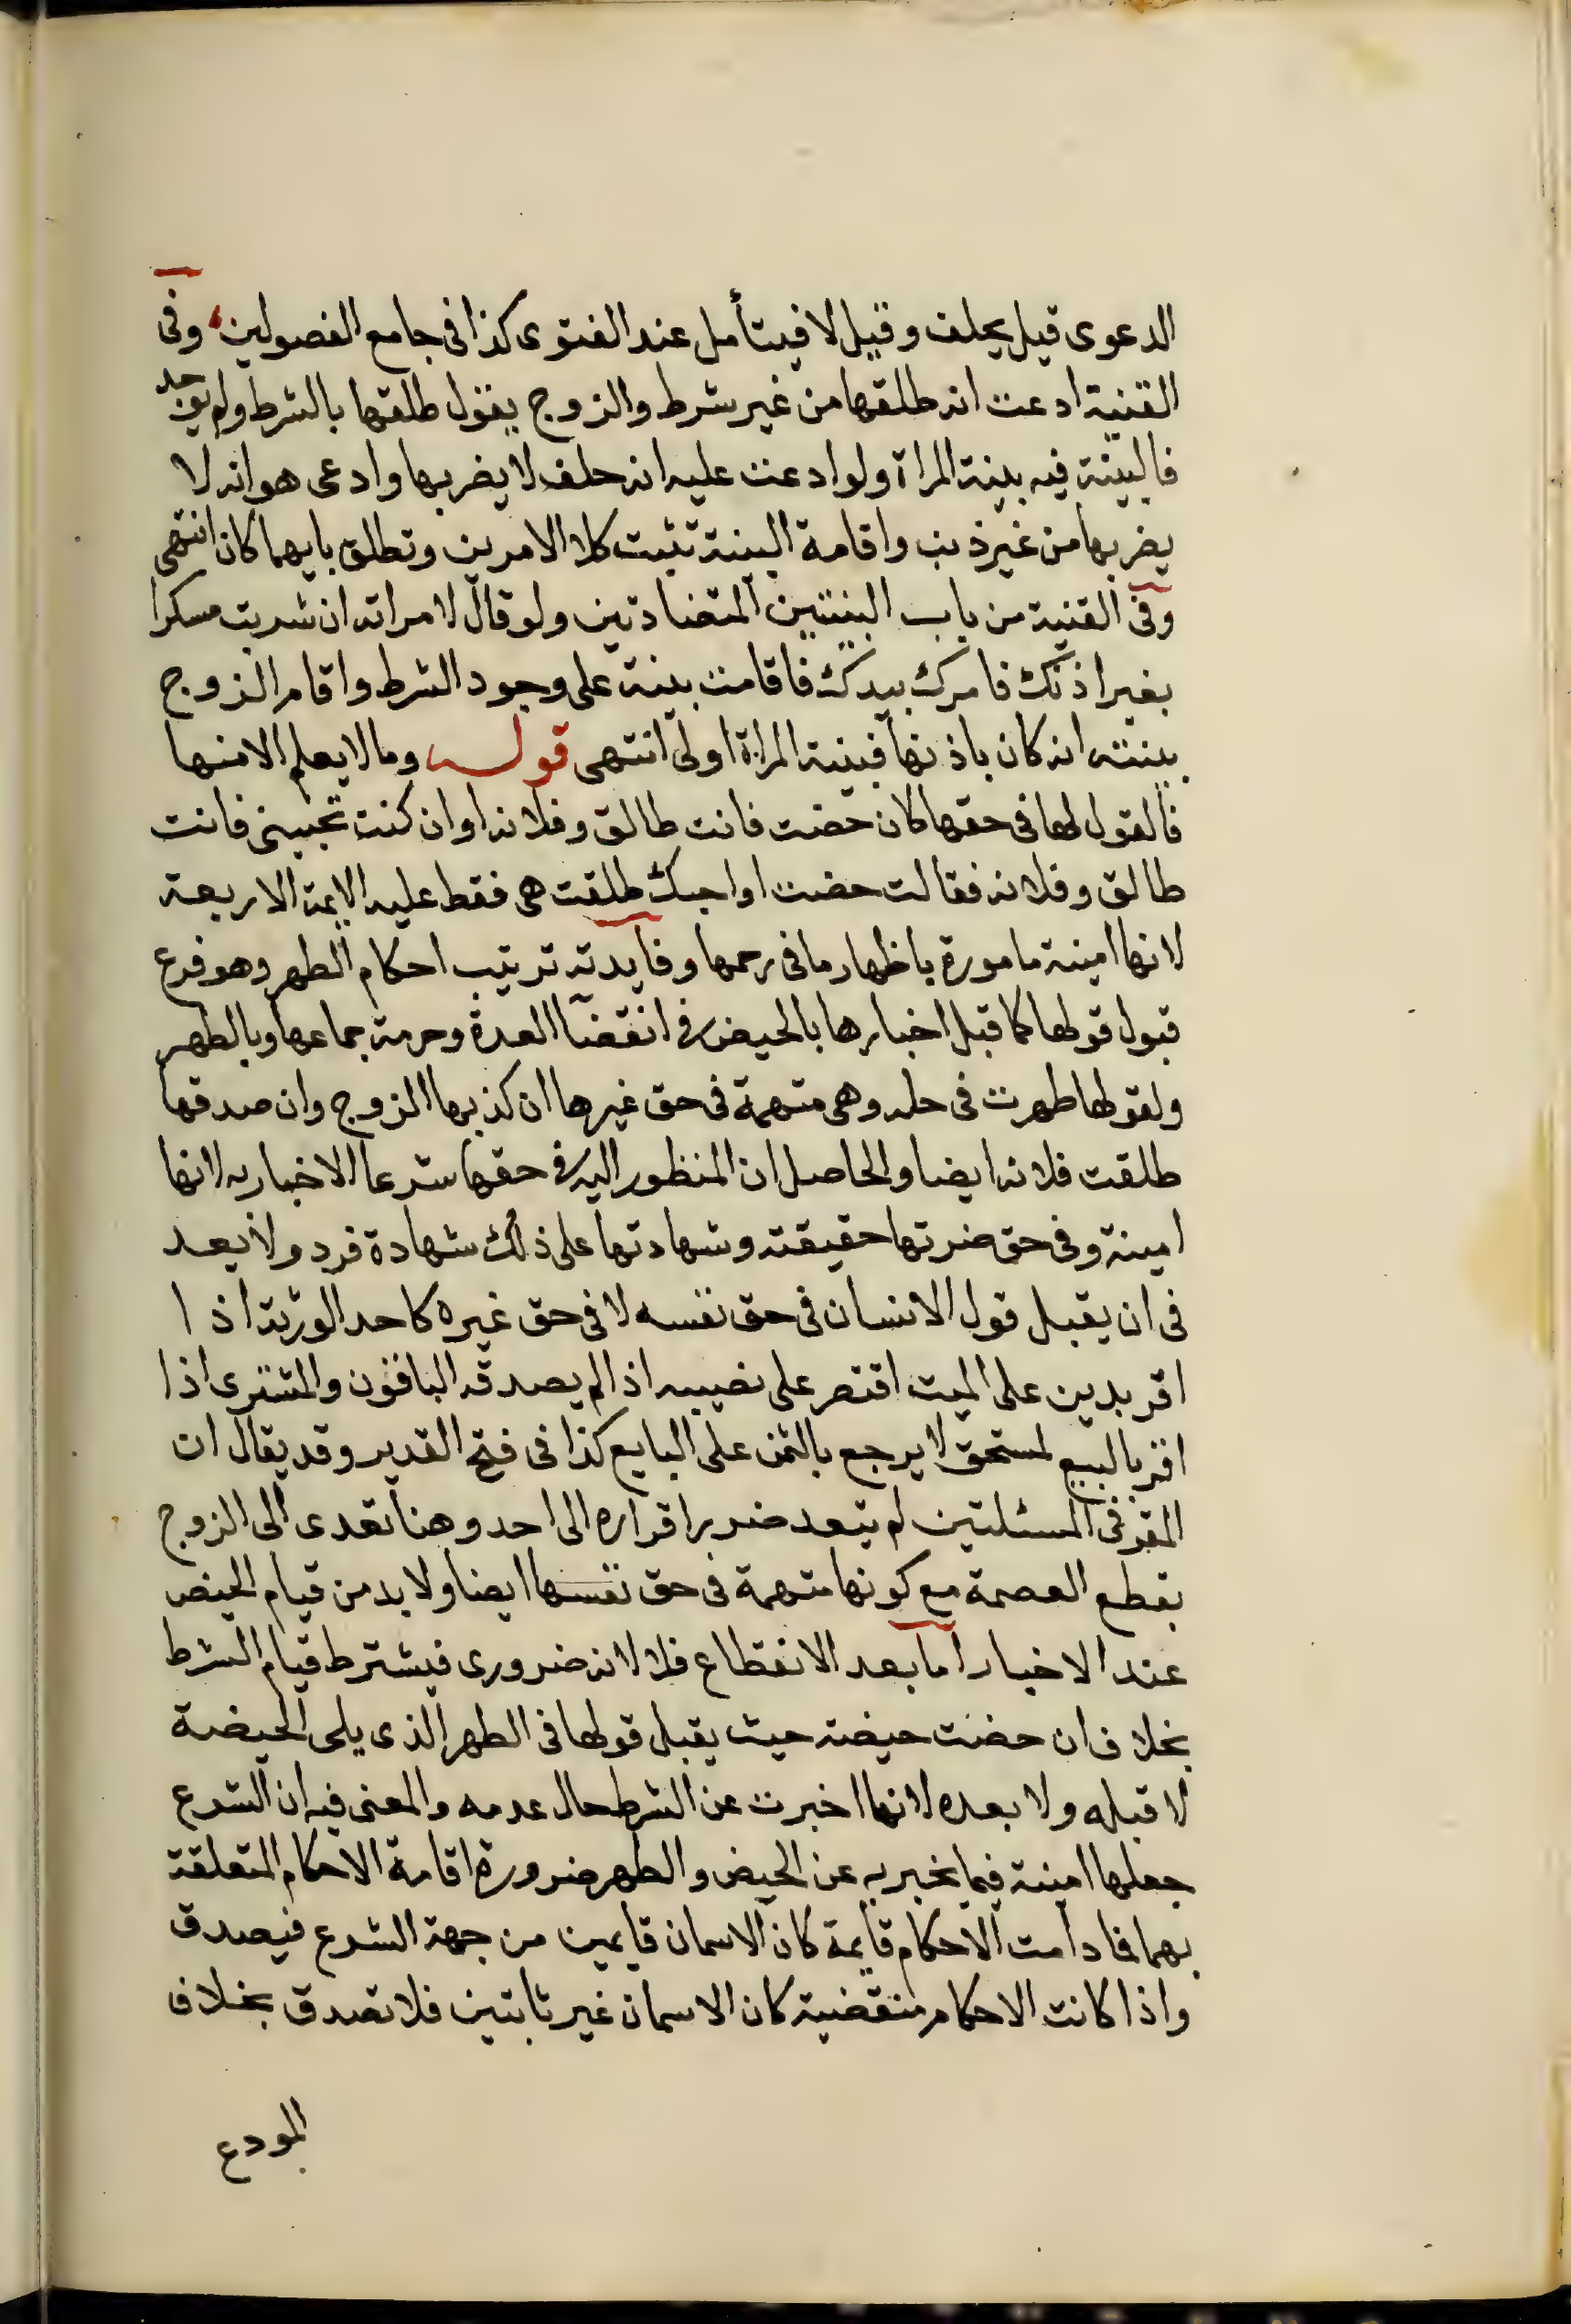 الدعوى قيل يحلف وقيل لا فيتأمل عند الفتوى كذا فى جامع الفصولين وفى
القنية ادعت انه طلقها من غير شرط والزوج يقول طلقتها بالشرط ولم يوجد
فالبينة فيه بينة المراة ولو ادعت عليه انه حلف لا يضربها وادعى هو انه لا
يضربها من غير ذنب واقامة البينة تثبت كلا الامرين وتطلق بايهما كان انتهى
وفى القنية من باب البينتين المتضادتين ولو قال لامراته ان شربت مسكرا
بغير اذنك فامرك بيدك فاقامت بينة على وجود الشرط واقام الزوج
بينته انه كان باذنها فبينة المراة اولى انتهى قوله وما لا يعلم الا منها
فالقول لها فى حقها كان حضت فانت طالق وفلانة او ان كنت تحبينى فانت
طالق وفلانة فقالت حضت او احبك طلقت هى فقط عليه الايمة الاربعة
لانها امينة مامورة باظهار ما فى رحمها وفايدته ترتيب احكام الطهر وهو فرع
قبول قولها كما قبل اخبارها بالحيض فى انقضآ العدة وحرمة جماعها وبالطهر
ولقولها طهرت فى حله وهى متهمة فى حق غيرها ان كذبها الزوج وان صدقها
طلقت فلانة ايضا والحاصل ان المنظور اليه فى حقها شرعا الاخبار به لانها
امينة وفى حق ضرتها حقيقته وشهادتها على ذلك شهادة فرد ولا يعد
فى ان يقبل قول الانسان فى حق نفسه لا فى حق غيره كاحد الورثة اذا
اقر بدين على الميت اقتصر على نصيبه اذا لم يصدقه الباقون والمشترى اذا
اقر بالبيع لمستحق لا يرجع بالثمن على البايع كذا فى فتح القدير وقد يقال ان
المقر فى المسئلتين لم يتعد ضرر اقراره الى احد وهنا تعدى الى الزوج
بقطع العصمة مع كونها متهمة فى حق نفسها ايضا ولا بد من قيام الحيض
عند الاخبار اما بعد الانقطاع فلا لانه ضرورى فيشترط قيام الشرط
بخلاف ان حضت حيضة حيث يقبل قولها فى الطهر الذى يلى الحيضة
لا قبله ولا بعده لانها اخبرت عن الشرط حال عدمه والمعنى فيه ان الشرع
جعلها امينة فيما تخبر به عن الحيض والطهر ضرورة اقامة الاحكام المتعلقة
بهما فما دامت الاحكام قايمة كان الاسمان قايمين من جهة الشرع فيصدق
واذا كانت الاحكام منقضية كان الاسمان غير ثابتين فلا تصدق بخلاف
المودع